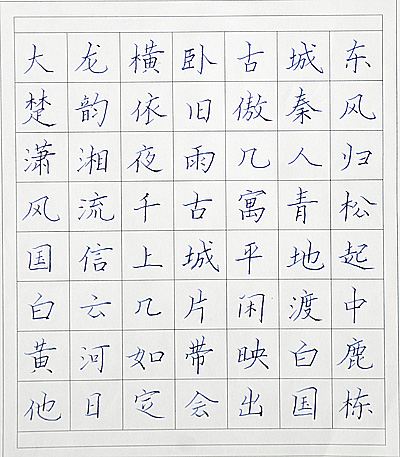 大龙横卧古城东
楚韵依旧傲秦风
潇湘夜雨几人归
风流千古寓青松
国信上城平地起
白云几片闲渡中
黄河如带映白鹿
他日定会出国栋